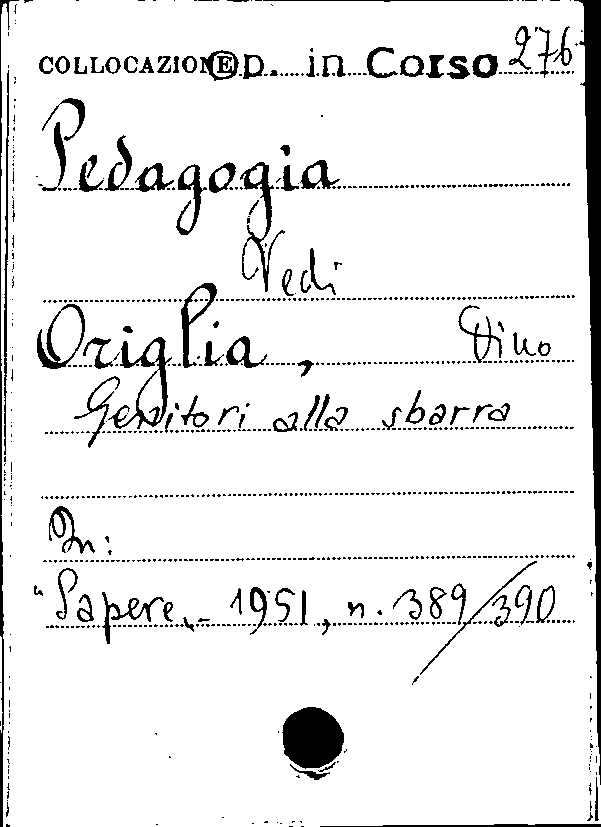 COLLOCAZIONE P. in Corso 276
Pedagogia
Vedi
Origlia, Dino
Genitori alla sbarra
In:
"Sapere„- 1951, n. 389/390